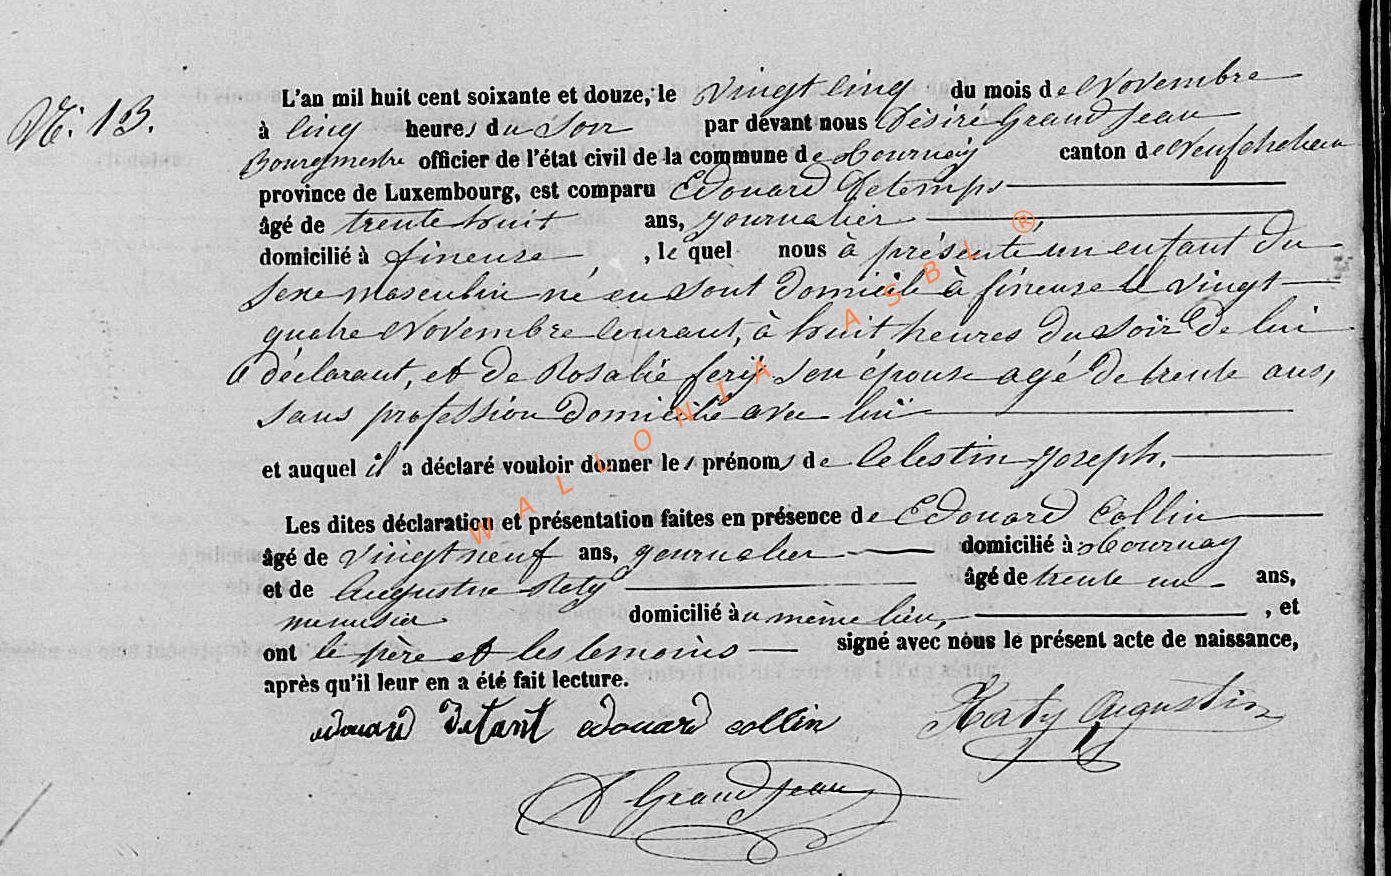 N.° 13.
L'an mil huit cent soixante et douze, le vingt cinq du mois de Novembre
à cinq heures du Soir par devant nous Désiré Grandjean
Bourgmestre officier de l'état civil de la commune de Tournay canton de Neufchateau
province de Luxembourg, est comparu Edouard Detemps
âgé de trente huit ans, journalier
domicilié à fineuse, le quel nous à présenté un enfant du
Sexe masculin né en sont domicile à fineuse le vingt
quatre Novembre courant, à huit heures du soir de lui
déclarant, et de Rosalie son épouse agé de trente ans,
sans profession domicilié avec lui
et auquel il a déclaré vouloir donner les prénoms de Celestin Joseph.
Les dites déclaration et présentation faites en présence de Edouard Collin
âgé de vingt neuf ans, journalier domicilié à Tournay
et de Augustin Katy âgé de trente un ans,
menusier domicilié au même lieu, , et
ont le père et les temoins signé avec nous le présent acte de naissance,
après qu'il leur en a été fait lecture.
edouard detant edouard collin Katy Augustin
D Grandjean
WALLONIA ASBL ®